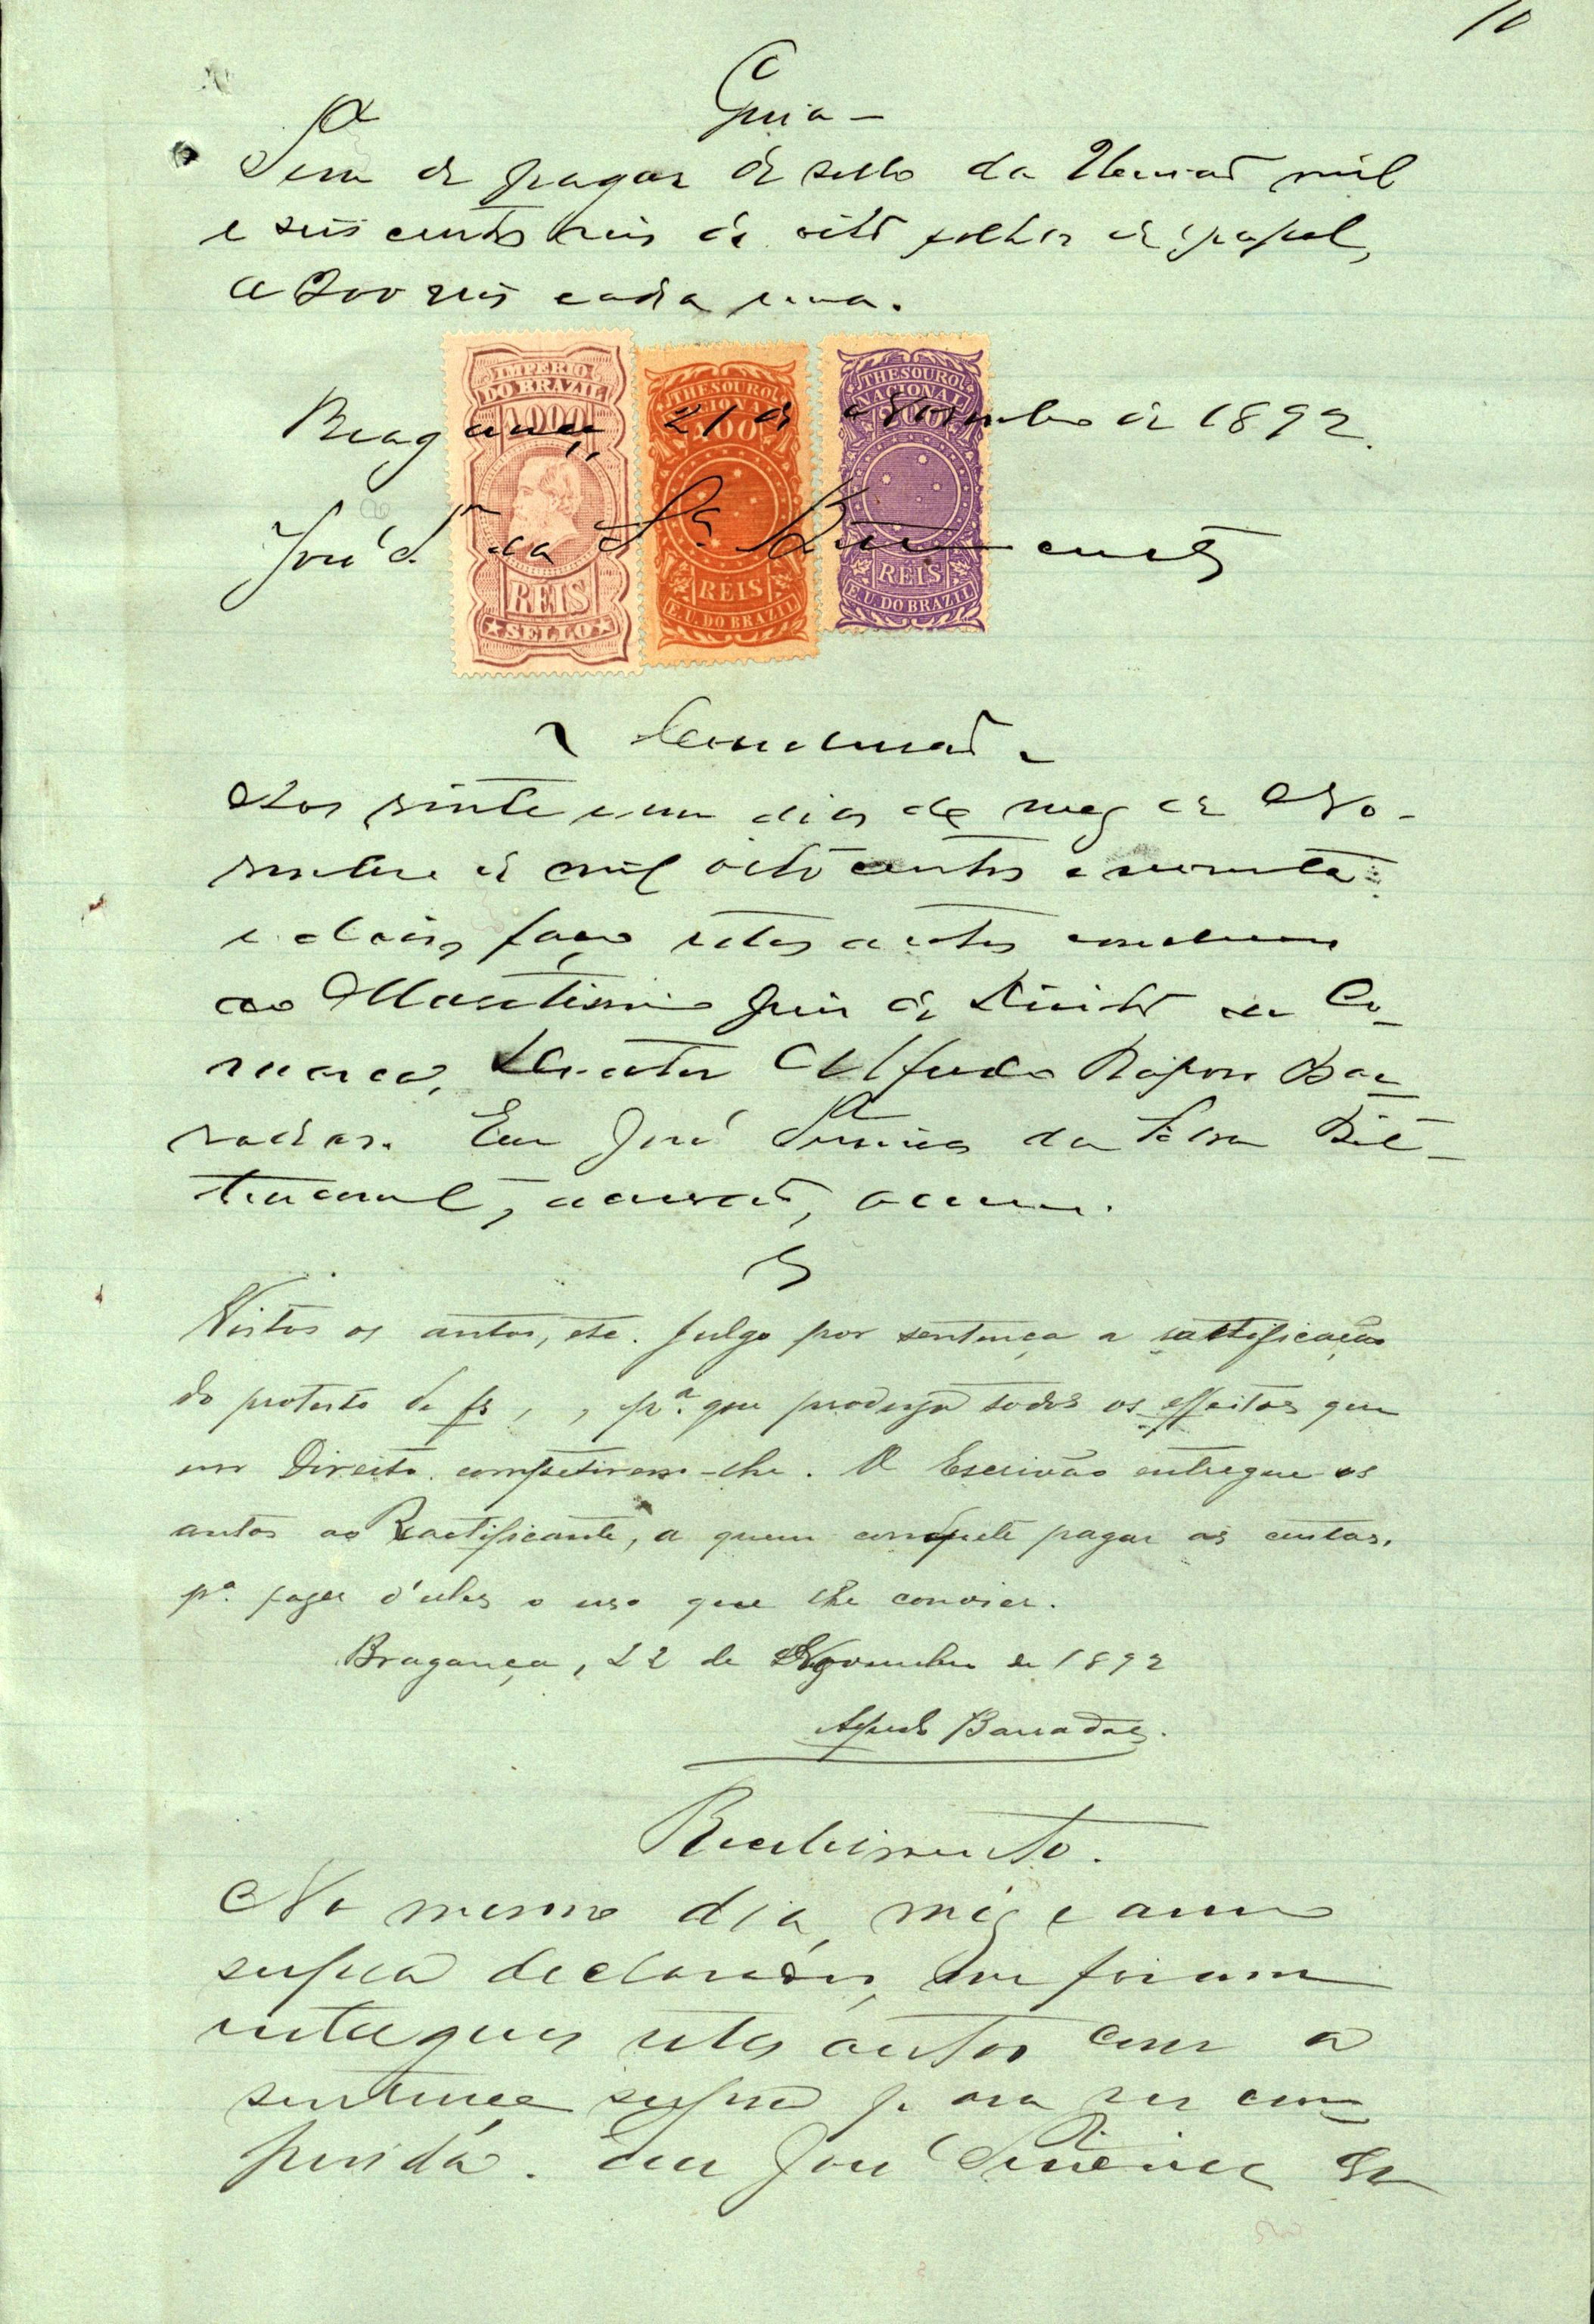 10
Guia –
Tem de pagar de sello da União mil
e seis centos reis de oito folhas de papel,
a 200 reis cada uma.
IMPERIO
DO BRAZIL
1000
REIS
SELLO
THESOURO
NACIONAL
400
REIS
E. U. DO BRAZIL
THESOURO
NACIONAL
200
REIS
E. U. DO BRAZIL
Bragança, 21 de Novembro de 1892.
José F.ra da S.a Bittencourt
Conclusão
Aos vinte e um dias do mez de No-
vembro de mil oito centos e noventa
e dois, faço estes autos conclusos
ao Meritissimo Juiz de Direito da Co-
marca, Doutor Alfredo Raposo Bar-
radas. Eu José Ferreira da Silva Bit-
tencourt, escrivão, escrevi.
Vistos os autos, etc. Julgo por sentença a ratificação
do protesto de fs , , p.a que produza todos os effeitos que
em Direito competirem-lhe. O Escrivão entregue os
autos ao Ractificante, a quem compete pagar as custas,
p.a fazer d'elles o uso que lhe convier.
Bragança, 22 de Novembro de 1892
Alfredo Barradas.
Recebimento.
No mesmo dia, mez e anno
supra declarados, me foram
entregues estes autos com a
sentença supra para ser cum
prida. Eu José Ferreira da